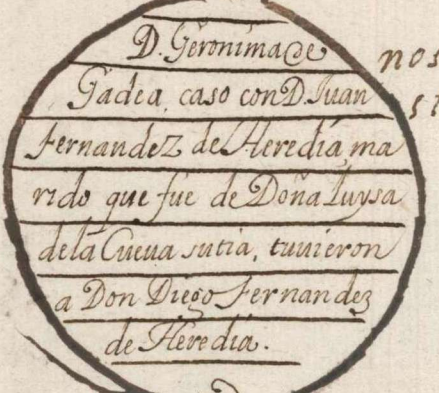 D. Geronima de
Gadea, caso con D. Juan
Fernandez de Heredia, ma
rido que fue de Doña Luysa
de la Cueua su tia, tuuieron
a Don Diego Fernandez
de Heredia.
nos